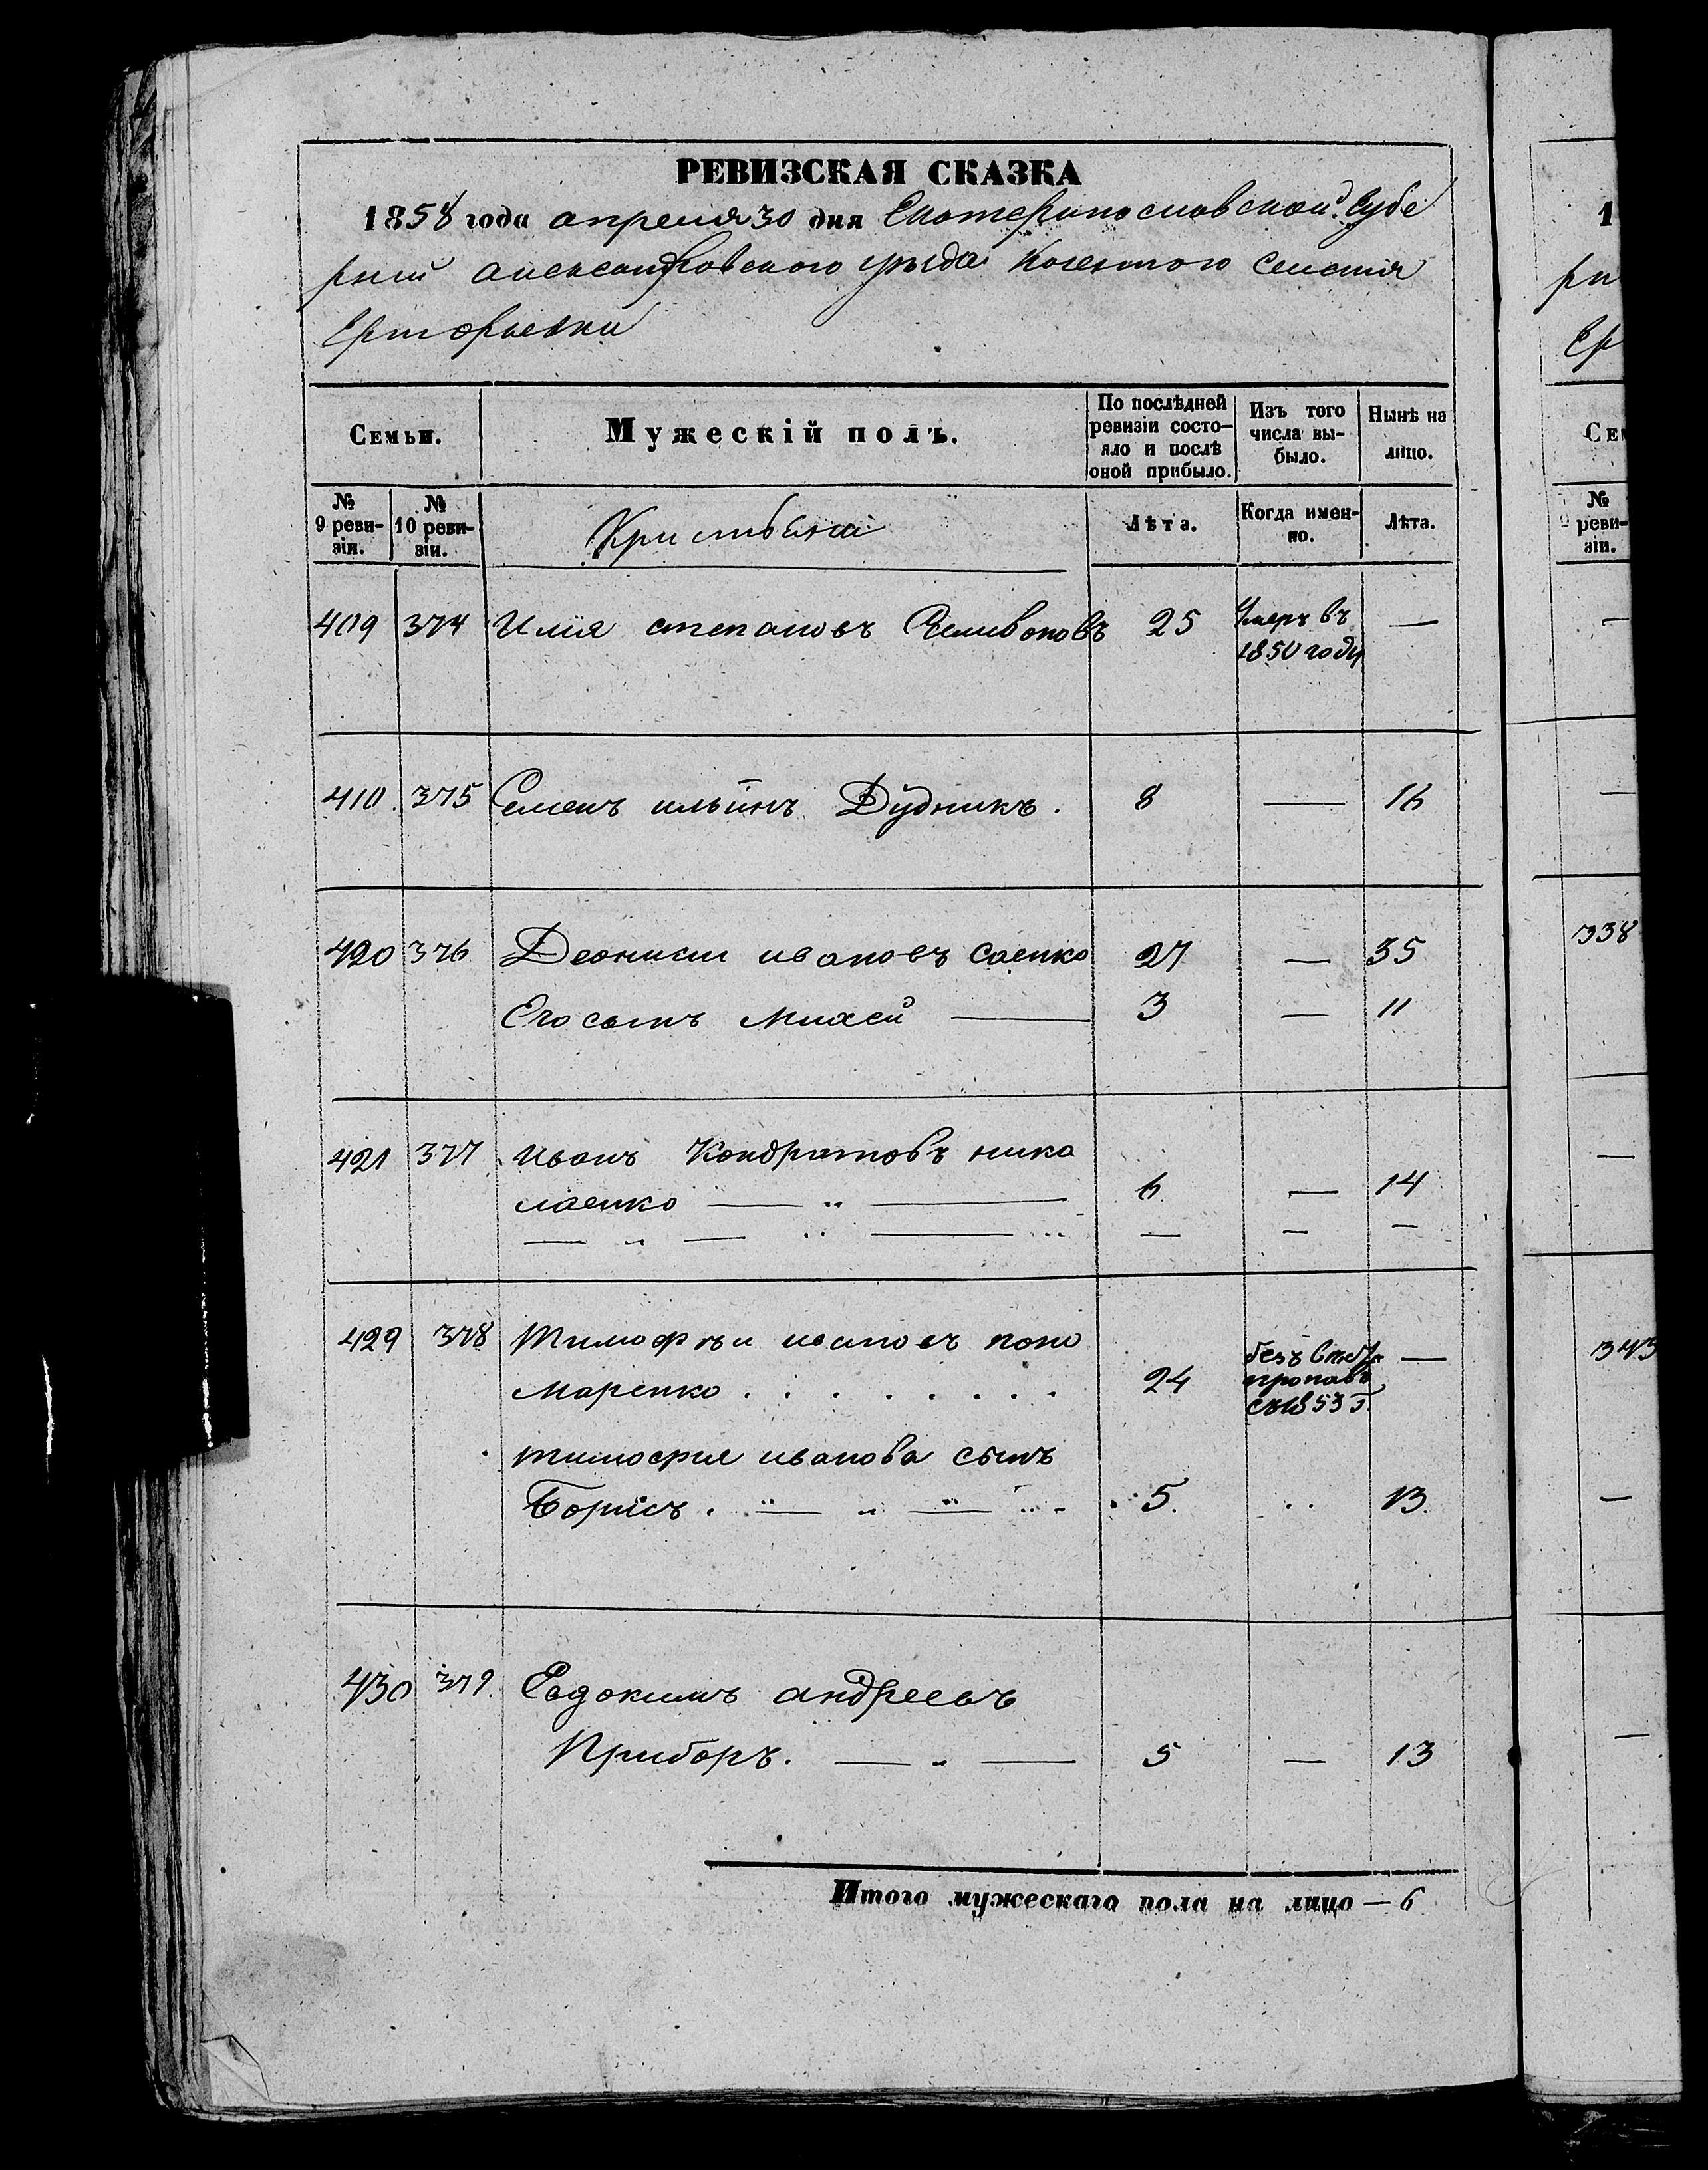 РЕВИЗСКАЯ СКАЗКА
1858 года апреля 30 дня Екатеринославской Губе
рнии александровского уезда Казенного селения
Григорьевки
Семьи.
Мужескій полъ.
По послѣдней ревизіи состо-
яло и послѣ
оной прибыло.
Изъ того
числа вы-
было.
Нынѣ на
лицо.
№
9 реви-
зіи.
№
10 реви-
зіи.
Кристьяна
Лѣта.
Когда имен-
но.
Лѣта.
409 374 Илія степановъ Селивоновъ 25 Умеръ въ —
1850 году
410. 375 Семенъ ильинъ Дудникъ. 8 — 16
420 376 Деонисии ивановъ саенко 27 — 35
Его сынъ Михей — 3 — 11
421 377 Иванъ Кондратовъ нико
лаенко — „ — 6 — 14
429 378 Тимофѣи ивановъ поно
маренко . . . . . . . . 24 безъ вѣсти —
пропавъ
съ 1853 г.
тимофия иванова сынъ
Борисъ . — „ — 5. 13.
430 379. Евдокимъ андреевъ
Приборъ. — „ — 5 — 13
Итого мужескаго пола на лицо — 6
1
рн
Семь
№
реви-
зіи.
338
343